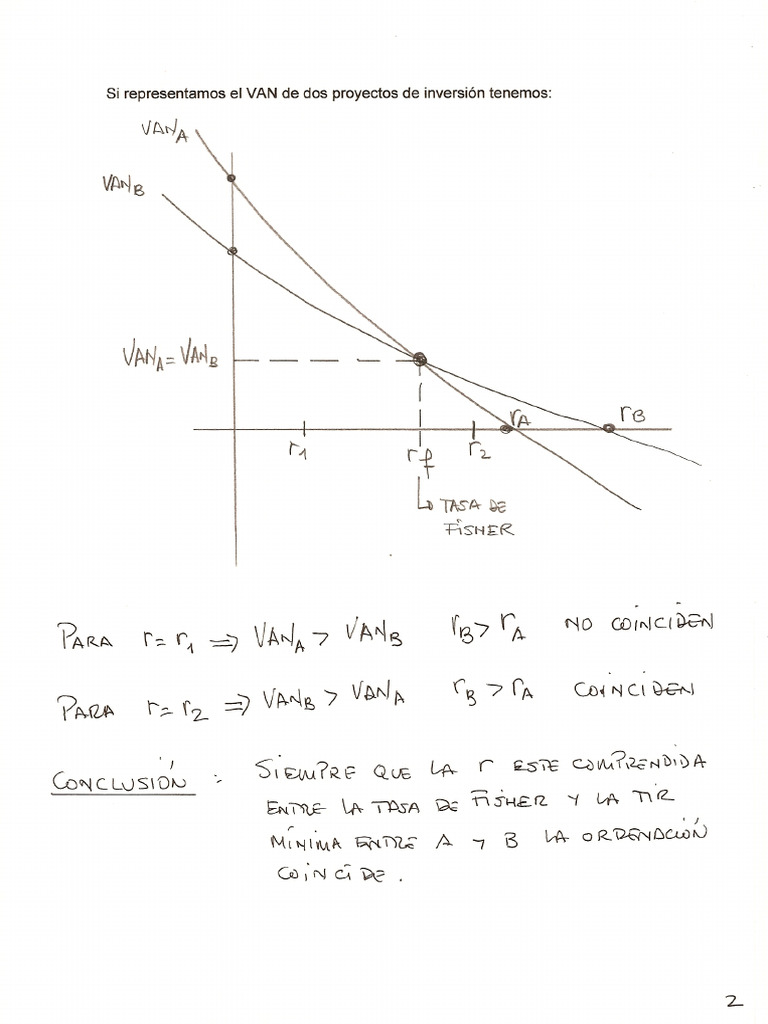 Si representamos el VAN de dos proyectos de inversión tenemos:
VAN_A
VAN_B
VAN_A = VAN_B
r_A
r_B
r_1
r_f
r_2
TASA DE
FISHER
PARA r = r_1 ⇒ VAN_A > VAN_B r_B > r_A NO COINCIDEN
PARA r = r_2 ⇒ VAN_B > VAN_A r_B > r_A COINCIDEN
CONCLUSIÓN : SIEMPRE QUE LA r ESTE COMPRENDIDA
ENTRE LA TASA DE FISHER Y LA TIR
MÍNIMA ENTRE A Y B LA ORDENACIÓN
COINCIDE.
2